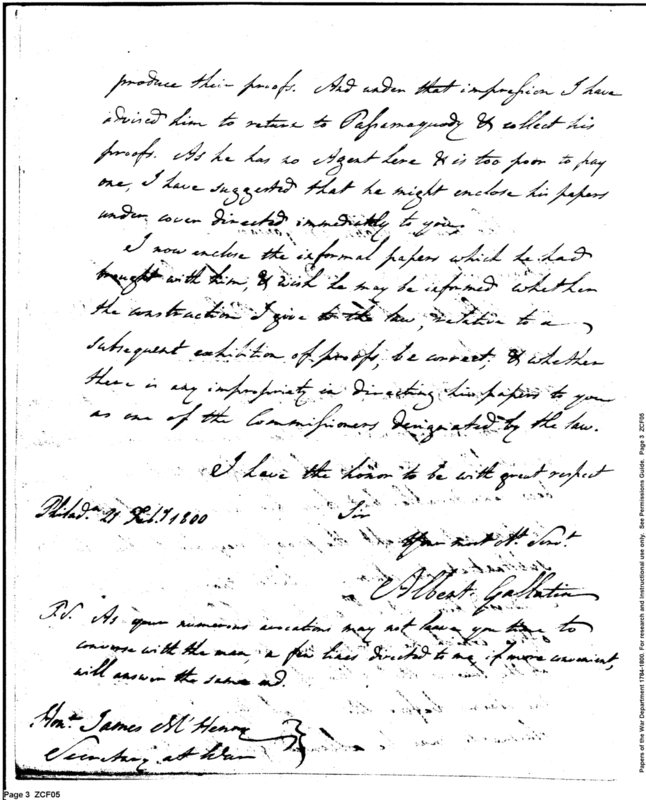 produce their proofs. And under that impression I have
advised him to return to Passamaquody & collect his
proofs. As he has no Agent here & is too poor to pay
one, I have suggested that he might enclose his papers
under cover directed immediately to you.
I now enclose the informal papers which he had
brought with him, & wish he may be informed whether
the construction I give to the law, relative to a
subsequent exhibition of proofs, be correct, & whether
there is any impropriety in directing his papers to you
as one of the Commissioners designated by the law.
I have the honor to be with great respect
Philad.ª 21 Feb.y 1800
Sir
Your most Ob. Serv.t
Albert Gallatin
P.S. As your numerous avocations may not leave you time to
converse with the man, a few lines directed to me, if more convenient,
will answer the same end.
Hon.ble James McHenry
Secretary at War
Page 3 ZCF05
Papers of the War Department 1784-1800. For research and instructional use only. See Permissions Guide. Page 3 ZCF05